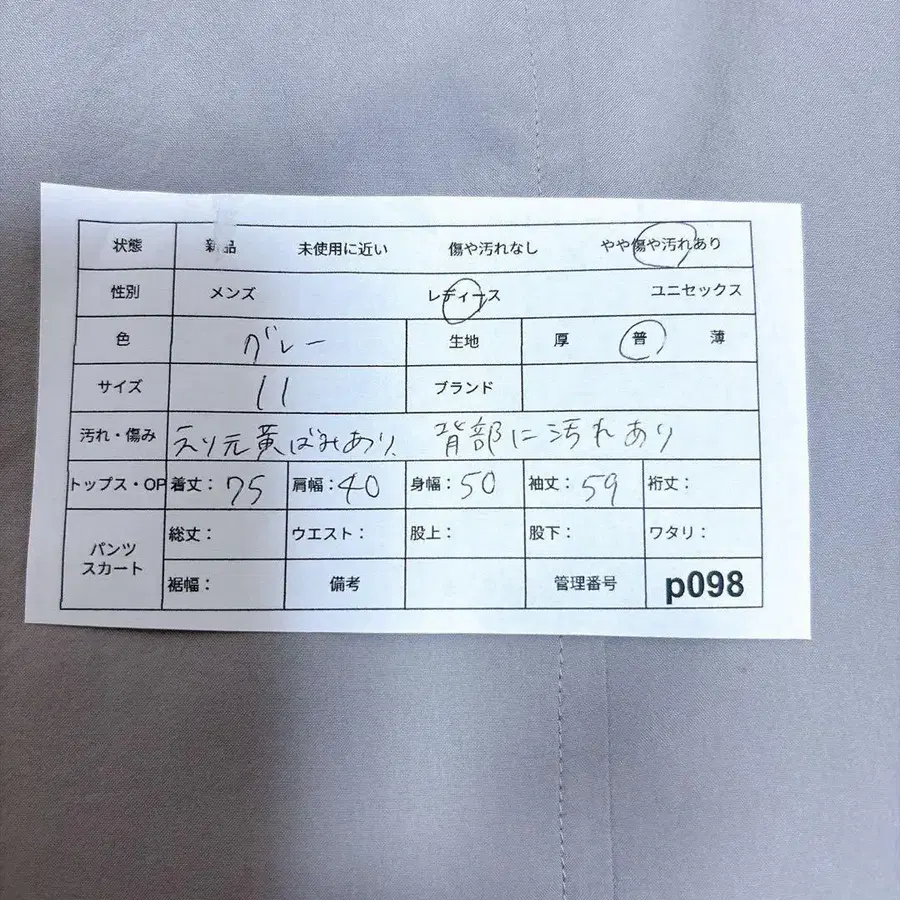 状態 新品 未使用に近い 傷や汚れなし やや傷や汚れあり
性別 メンズ レディース ユニセックス
色 グレー 生地 厚 普 薄
サイズ 11 ブランド
汚れ・傷み えり元黄ばみあり、背部に汚れあり
トップス・OP 着丈：75 肩幅：40 身幅：50 袖丈：59 裄丈：
パンツ
スカート
総丈： ウエスト： 股上： 股下： ワタリ：
裾幅： 備考 管理番号 p098